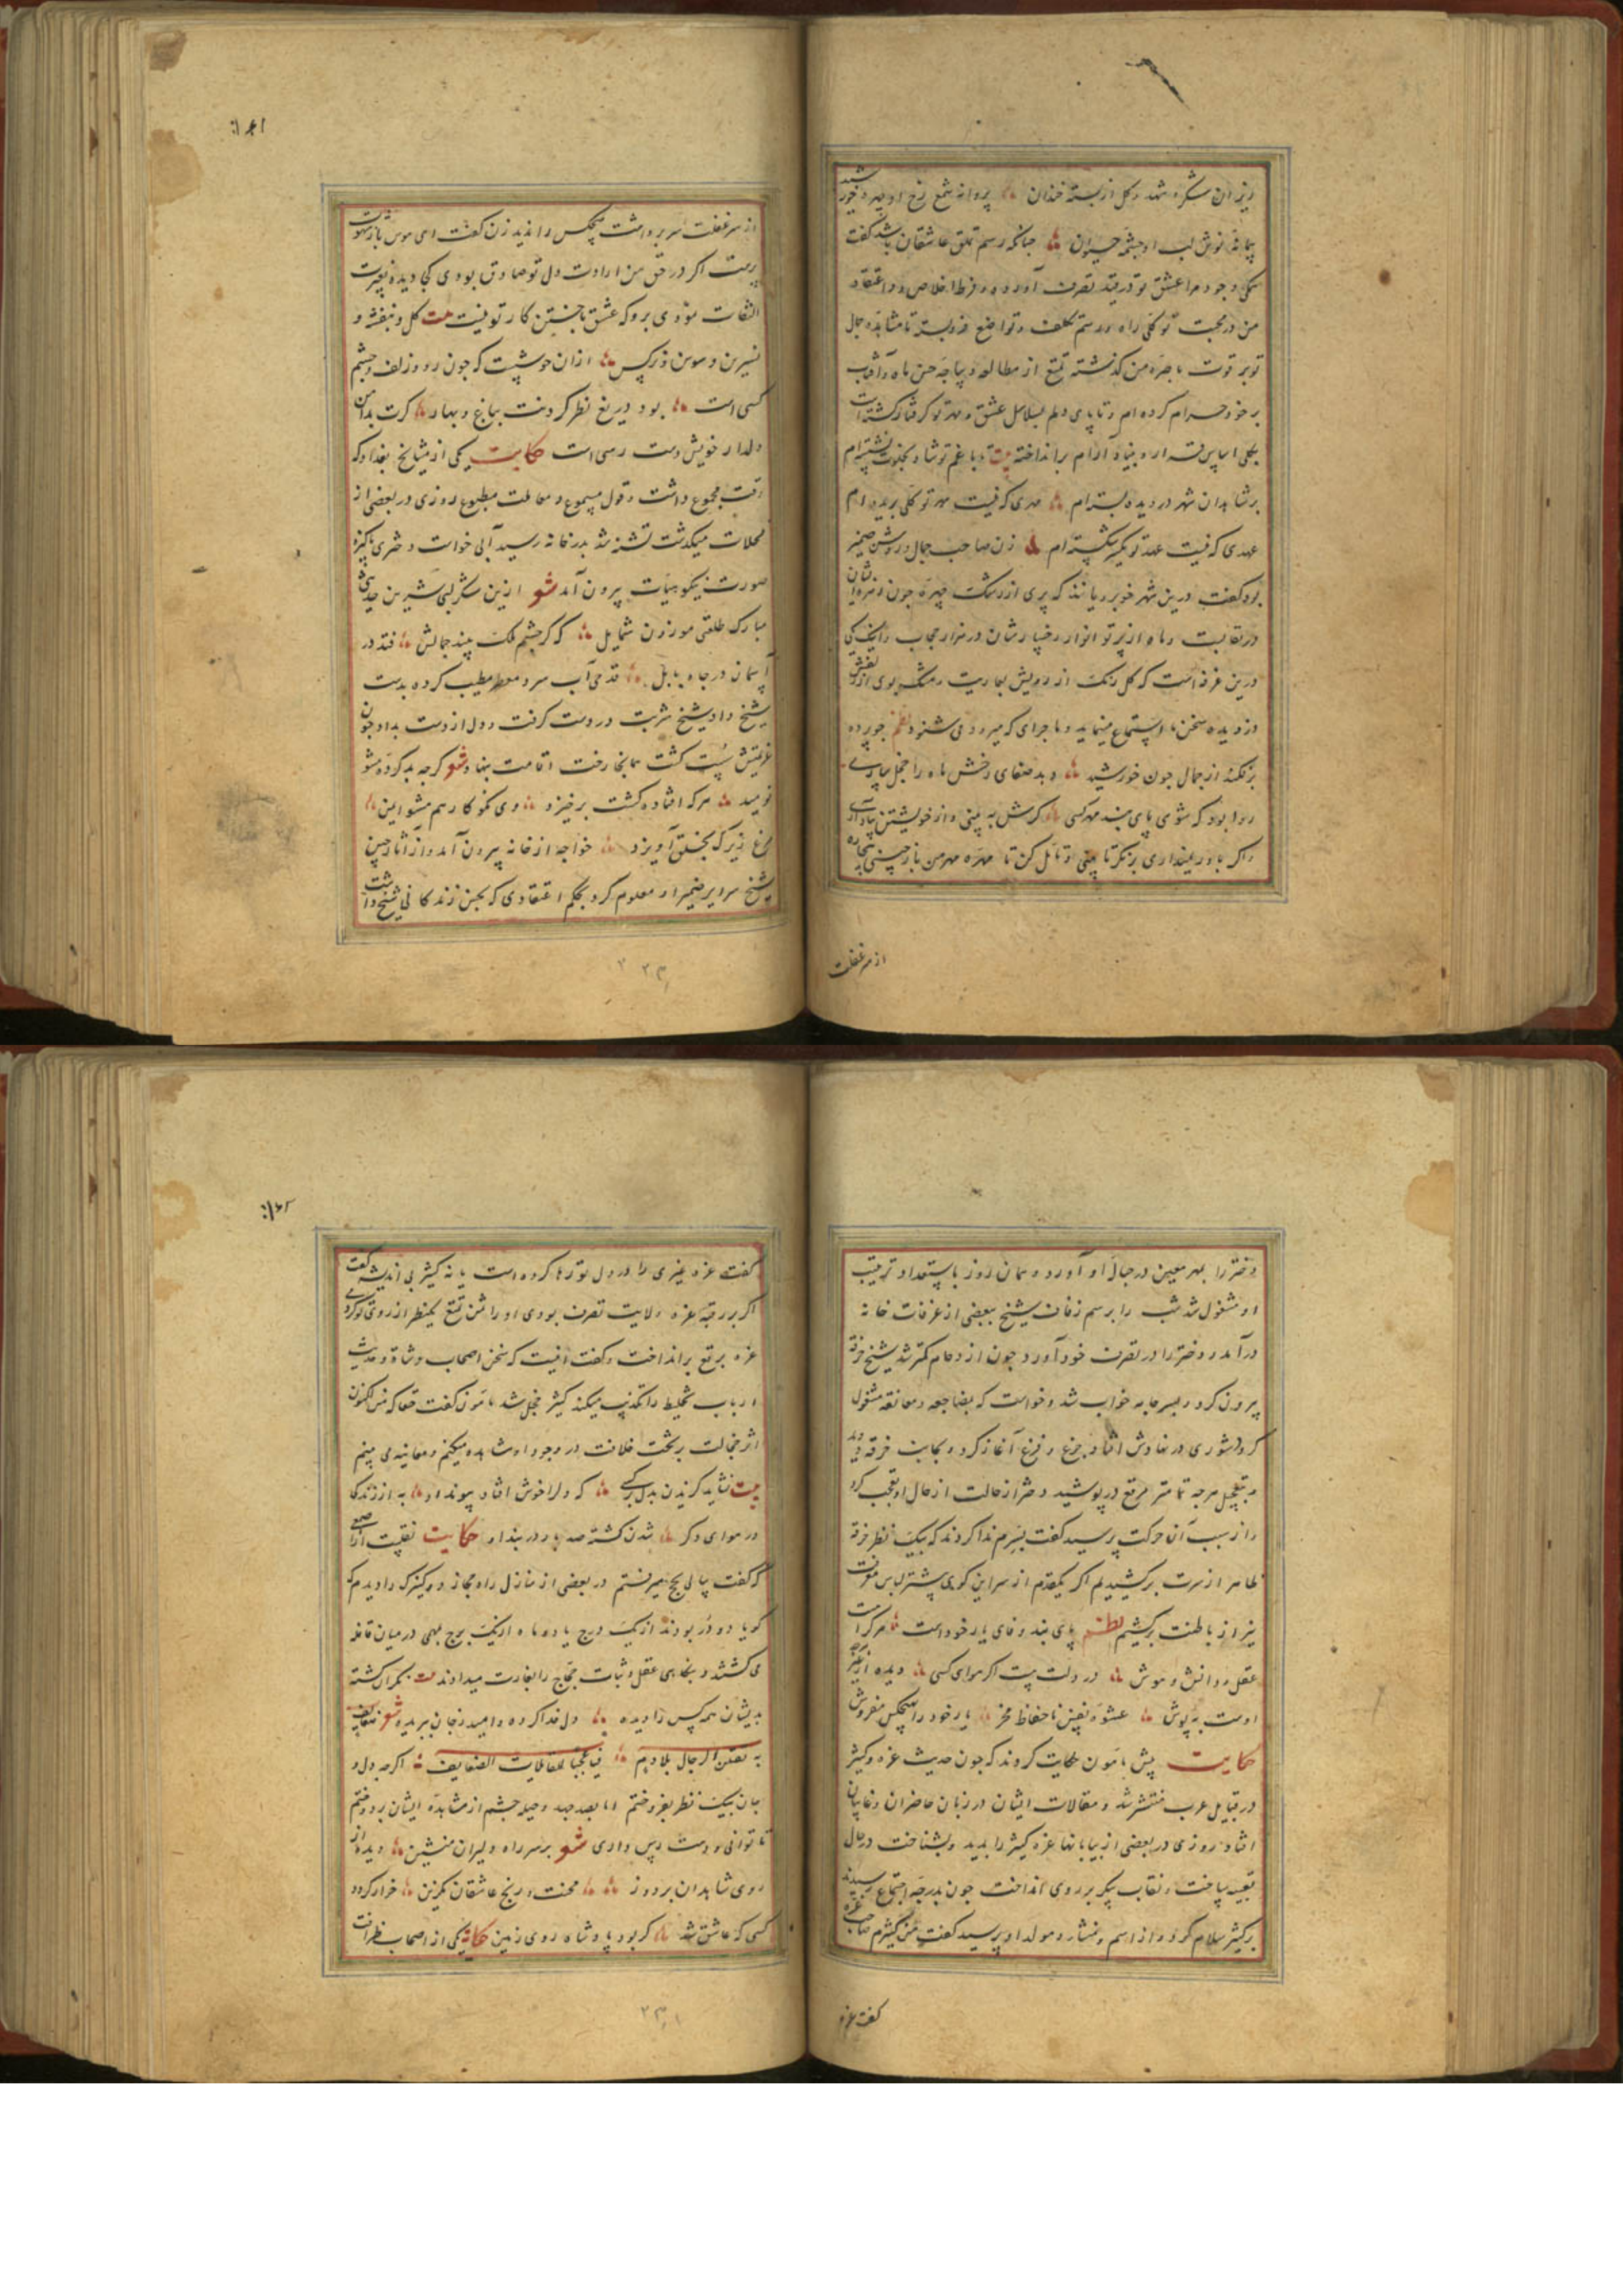 ریزان شکر و شهد و کل از بسته خندان پروانه شمع رخ او مهر و خورشید
پیمانه نوش لب او چشمه حیوان چنانکه رسم تملق عاشقان باشد کفت
وجود مرا عشق تو در قید تصرف آورده و فرط اخلاص و اعتقاد
من در محبت تو کلی راه و رسم تکلف و تواضع فرو بسته تا مشاهده جمال
تو بر قوت باصره من کذشته تمتع از مطالعه دیباجه حسن ماه و آفتاب
بر خود حرام کرده ام و تا پای دلم بسلاسل عشق و مهر تو کرفتار کشته است
بکلی اساس قرار و بنیاد آرام برانداخته بیت تا با غم تو شاد بخلوت نشسته ام
بر شاهدان شهر در دیده بسته ام مهری که نیست مهر تو کلی بریده ام
عهدی که نیست عهد تو یکسر شکسته ام زن صاحب جمال و روشن ضمیر
بود کفت درین شهر خوبرویانند که پری از رشک چهره چون زهره ایشان
در نقابست و ماه از پرتو انوار رخسارشان در هزار حجاب و اینک یکی
درین غرفه است که کل رنک از رویش بعاریت و مشک بوی از زلفش
دزدیده سخن ما استماع مینماید و ماجرای که میرود می شنود نظم
بزنکند از جمال چون خورشید و بد صفای رخش ماه را خجل
روا بود که شوی پای بند مهر کسی کرش به بینی و از خویشتن
و اکر باور نمیداری بنکر تا بینی و تامل کن تا مهره مهر من باز چینی بیچاره
از سر غفلت
۱۶۱
از سر غفلت سر برداشت هیچکس را ندید زن کفت ای هوس باز شهوت
پرست اکر در حق من ارادت دل تو صادق بودی کجا دیده بغیرت
التفات نمودی برو که عشق باختن کار تو نیست بیت کل و بنفشه و
نسرین و سوسن و نرکس ازان خوشست که چون رو و زلف و چشم
کسی است بود دریغ نظر کردنت بباغ و بهار کرت بدامن
دلدار خویش دست رسی است حکایت یکی از مشایخ بغداد که
وقت مجموع داشت و قول مسموع و معاملت مطبوع روزی در بعضی از
محلات میکذشت تشنه شد بدر خانه رسید آبی خواست دختری پاکیزه
صورت نیکو هیات بیرون آمد شعر ازین شکر لبی شیرین حدیثی
مبارک طلعتی موزون شمایل که کر چشم ملک بیند جمالش فتد در
آسمان در چاه بابل قدحی آب سرد معطر مطیب کرده بدست
شیخ داد شیخ شربت در دست کرفت و دل از دست بداد چون
عزیمتش سست کشت همانجا رخت اقامت بنهاد شعر کرچه بد کرده مشو
نومید هر که افتاده کشت برخیزد
مرغ زیرک بحلق آویزد خواجه از خانه بیرون آمد و از آثار جبین
شیخ سرایر ضمیر او معلوم کرد بحکم اعتقادی که بحسن زندکانی شیخ داشت
دختر را بمهر معین در حبال او آورد و همان روز باستعداد و ترتیب
او مشغول شد شب را برسم زفاف شیخ ببعضی از غرفات خانه
در آمد و دختر را در تصرف خود آورد چون ازدحام کمتر شد شیخ خرقه
بیرون کرد و بسر جامه خواب شد و خواست که بمضاجعه و معانقه مشغول
کردد شوری در نهادش افتاد جزع و فزع آغاز کرد و بجانب خرقه دوید
و بتعجیل هرچه تمامتر مرقع در پوشید دختر ازان حالت از حال او تعجب کرد
و از سبب آن حرکت پرسید کفت بسرم ندا کردند که بیک نظر خرقه
ظاهر از سرت برکشیدیم اکر یکقدم از سر این کوی پیشتر لباس معرفت
نیز از باطنت برکشیم نظم پای بند وفای یار خود است هر کرا
عقل و دانش و هوش در دلت نیست اکر هوای کسی دیده از غیر
اوست به پوش عشوه نفس ناحفاظ مخر یار خود را بهیچکس مفروش
حکایت پیش مامون حکایت کردند که چون حدیث عزه و کثیر
در قبایل عرب منتشر شد و مقالات ایشان در زبان حاضران و غایبان
افتاد روزی در بعضی از بیابانها عزه کثیر را بدید و بشناخت در حال
تعبیه بساخت و نقاب پیکر بر روی انداخت چون بدرجه اجتماع رسیدند
بر کثیر سلام کرد و از اسم و منشا و مولد او پرسید کفت من کثیرم صاحب عزه
کفت عزه
۱۶۲
کفت عزه غیری را در دل تو رها کرده است یا نه کثیر بی اندیشه کفت
اکر بر رقبه عزه ولایت تصرف بودی او را ثمن تمتع یکنظر از روی تو کردمی
عزه برقع برانداخت و کفت افیت که سخن اصحاب وشاة و حدیث
ارباب تخلیط را تکذیب میکند کثیر خجل شد مامون کفت حقا که من اکنون
اثر خجالت بر تخت خلافت در وجود او مشاهده میکنم و معاینه می بینم
بیت نشاید کزیدن بدل بر کسی که دل را خوش افتاد پیوند او به از زندکی
در هوای دکر شدن کشته صد بار در بند او حکایت نقلست از اصمعی
که کفت سالی بحج میرفتم در بعضی از منازل راه حجاز دو کنیزک را دیدم که
کویا دو در بودند از یک درج یا دو ماه از یک برج بهی در میان قافله
می کشتند و بنکاهی عقل و ثبات حجاج را بغارت میدادند بیت نکران کشته
بدیشان همه کس را دیده دل فدا کرده و امید ز جان ببریده شعر ضعایف
یقتلن الرجال بلا دم فیا عجبا للقاتلات الضعایف اکرچه دل و
جان بیک نظر بفروختم اما بصد جهد و حیله چشم از مشاهده ایشان بر دوختم
تا توانی و دست رس داری شعر بر سر راه دلبران منشین دیده از
روی شاهدان بردوز محنت و رنج عاشقان مکزین خوار کردد
کسی که عاشق شد کر بود پادشاه روی زمین حکایت یکی از اصحاب ظرافت